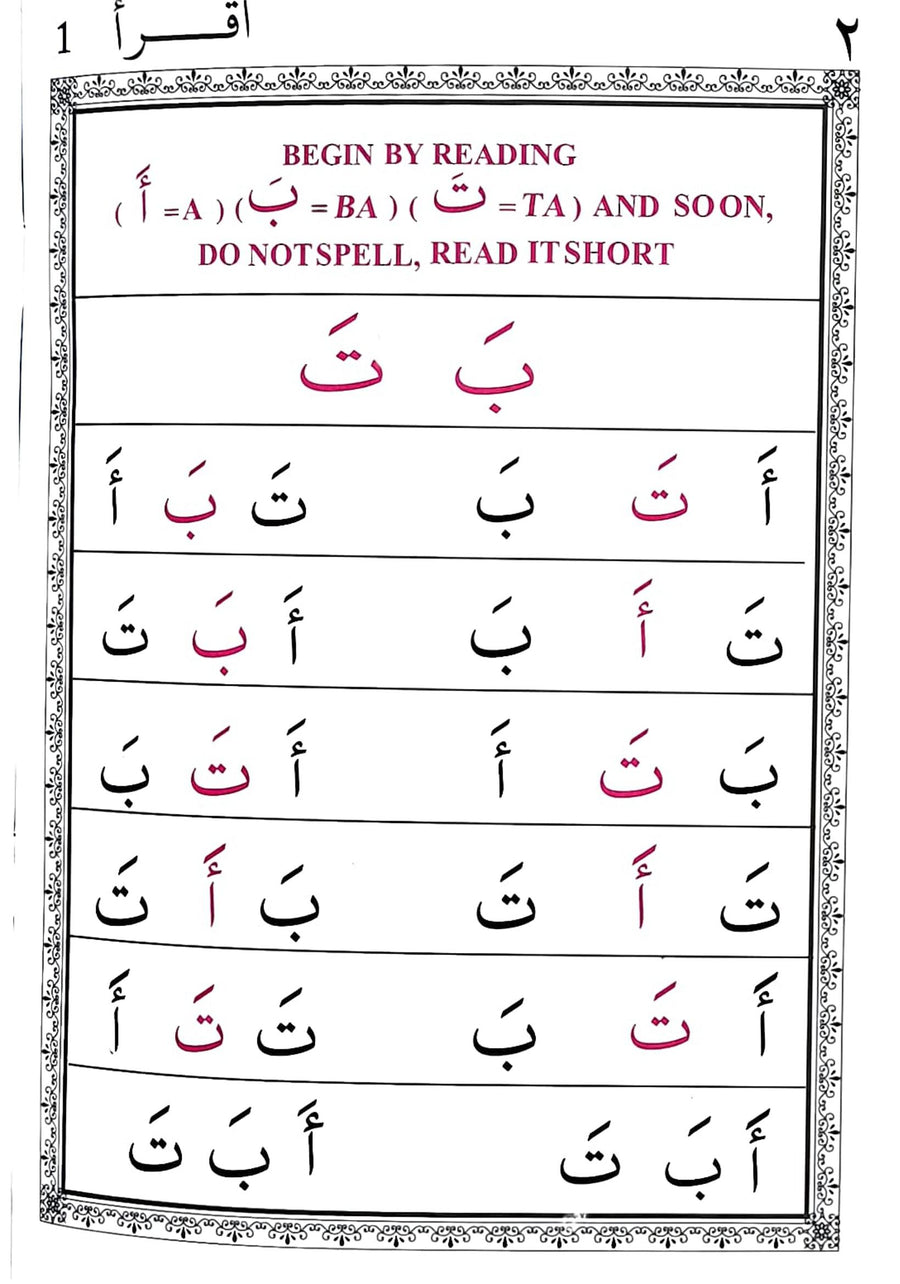 1 اقرأ ٢
BEGIN BY READING
( أَ =A ) ( بَ =BA ) ( تَ =TA ) AND SO ON,
DO NOT SPELL, READ IT SHORT
بَ تَ
أَ تَ بَ تَ بَ أَ
تَ أَ بَ أَ بَ تَ
بَ تَ أَ أَ تَ بَ
تَ أَ تَ بَ أَ تَ
أَ تَ بَ تَ تَ أَ
أَ بَ تَ أَ بَ تَ